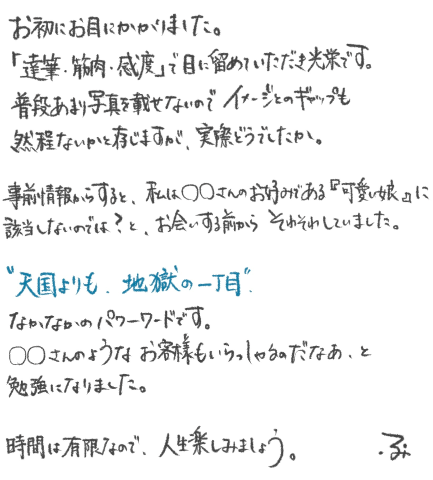 お初にお目にかかりました。
「達筆・筋肉・感度」で目に留めていただき光栄です。
普段あまり写真を載せないので イメージとのギャップも
然程ないかと存じますが、実際どうでしたか。
事前情報からすると、私は〇〇さんのお好みである『可愛い娘』に
該当しないのでは?と、お会いする前から そわそわしていました。
“天国よりも、地獄の一丁目”
なかなかのパワーワードです。
〇〇さんのような お客様もいらっしゃるのだなあ、と
勉強になりました。
時間は有限なので、人生楽しみましょう。